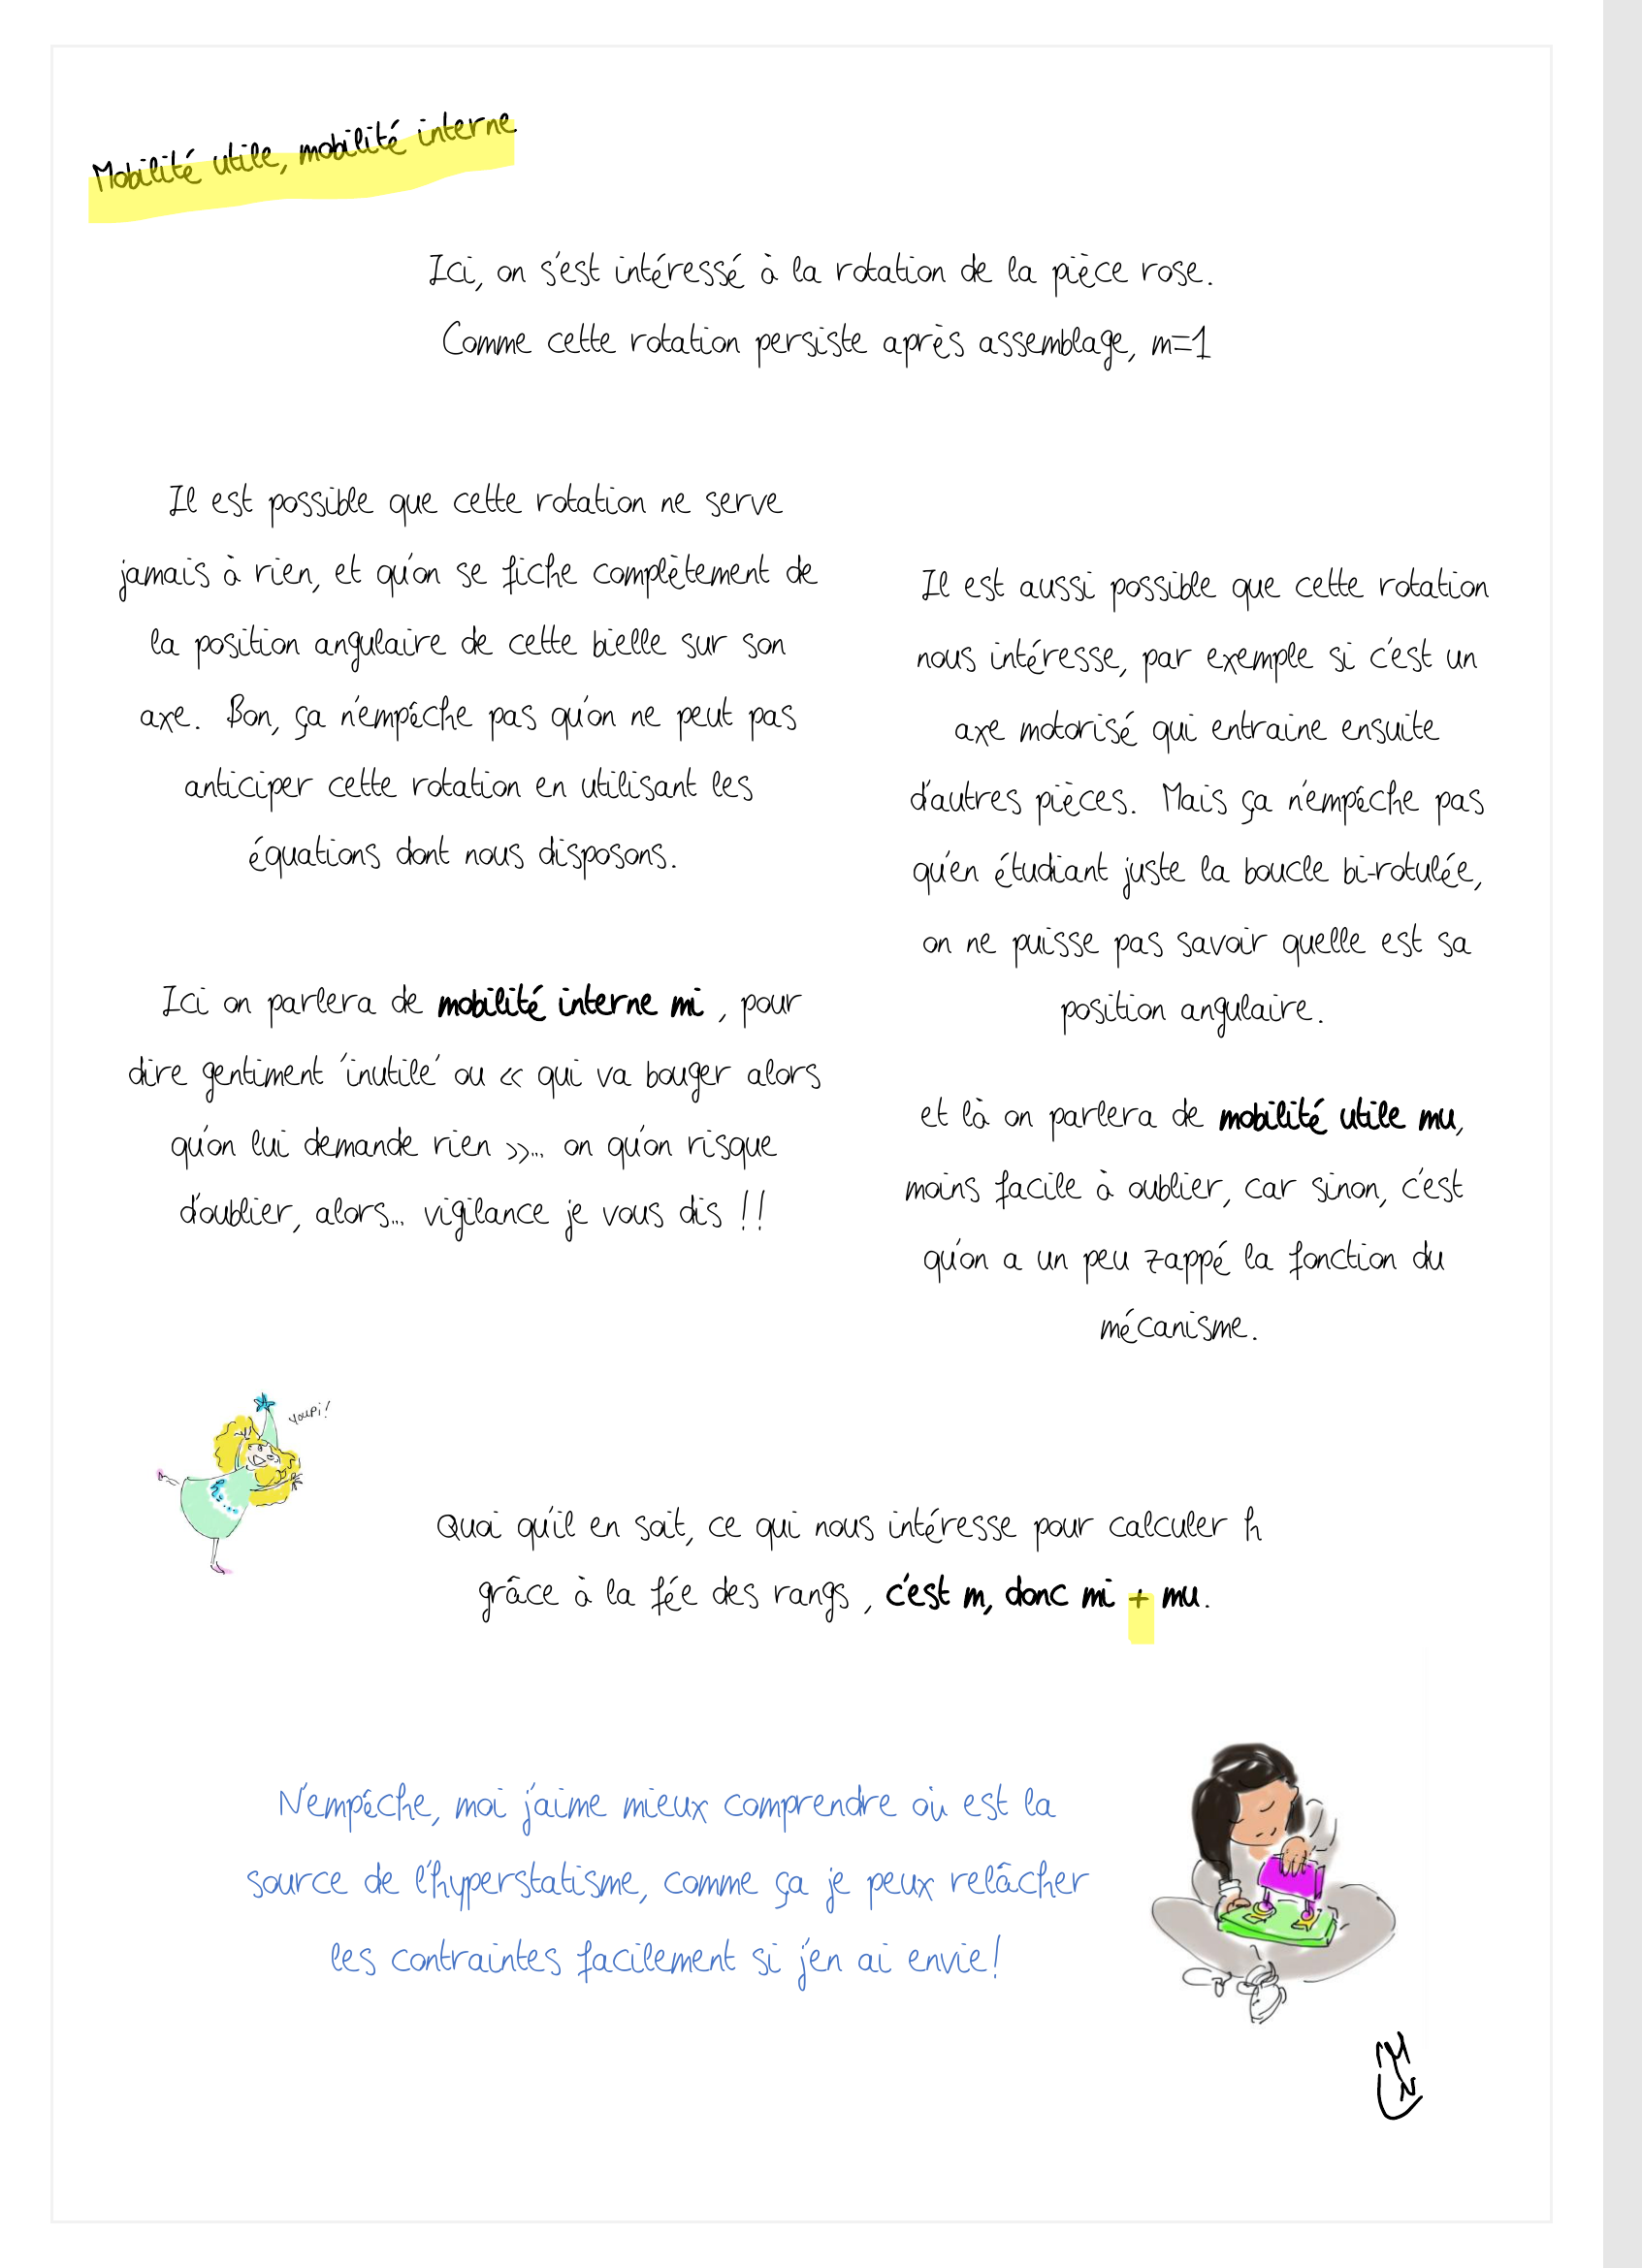 Mobilité utile, mobilité interne
Ici, on s'est intéressé à la rotation de la pièce rose.
Comme cette rotation persiste après assemblage, m=1
Il est possible que cette rotation ne serve
jamais à rien, et qu'on se fiche complètement de
la position angulaire de cette bielle sur son
axe. Bon, ça n'empêche pas qu'on ne peut pas
anticiper cette rotation en utilisant les
équations dont nous disposons.
Ici on parlera de mobilité interne mi , pour
dire gentiment 'inutile' ou « qui va bouger alors
qu'on lui demande rien »... on qu'on risque
d'oublier, alors... vigilance je vous dis !!
Il est aussi possible que cette rotation
nous intéresse, par exemple si c'est un
axe motorisé qui entraine ensuite
d'autres pièces. Mais ça n'empêche pas
qu'en étudiant juste la boucle bi-rotulée,
on ne puisse pas savoir quelle est sa
position angulaire.
et là on parlera de mobilité utile mu,
moins facile à oublier, car sinon, c'est
qu'on a un peu zappé la fonction du
mécanisme.
Youpi!
Quoi qu'il en soit, ce qui nous intéresse pour calculer h
grâce à la fée des rangs , c'est m, donc mi + mu.
N'empêche, moi j'aime mieux comprendre où est la
source de l'hyperstatisme, comme ça je peux relâcher
les contraintes facilement si j'en ai envie!